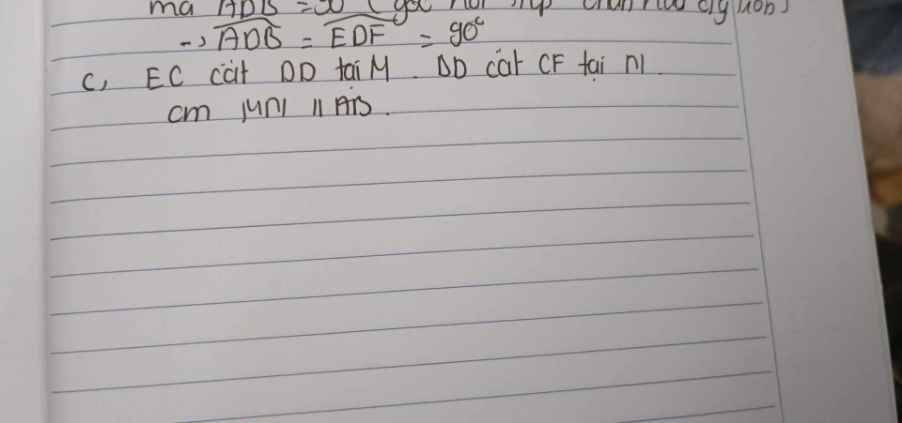 mà ADB = 90 (góc nội tiếp chắn nửa đường tròn)
-> ADB = EDF = 90°
c, EC cắt DD tại M. DD cắt CF tại N.
cm MN // AB.